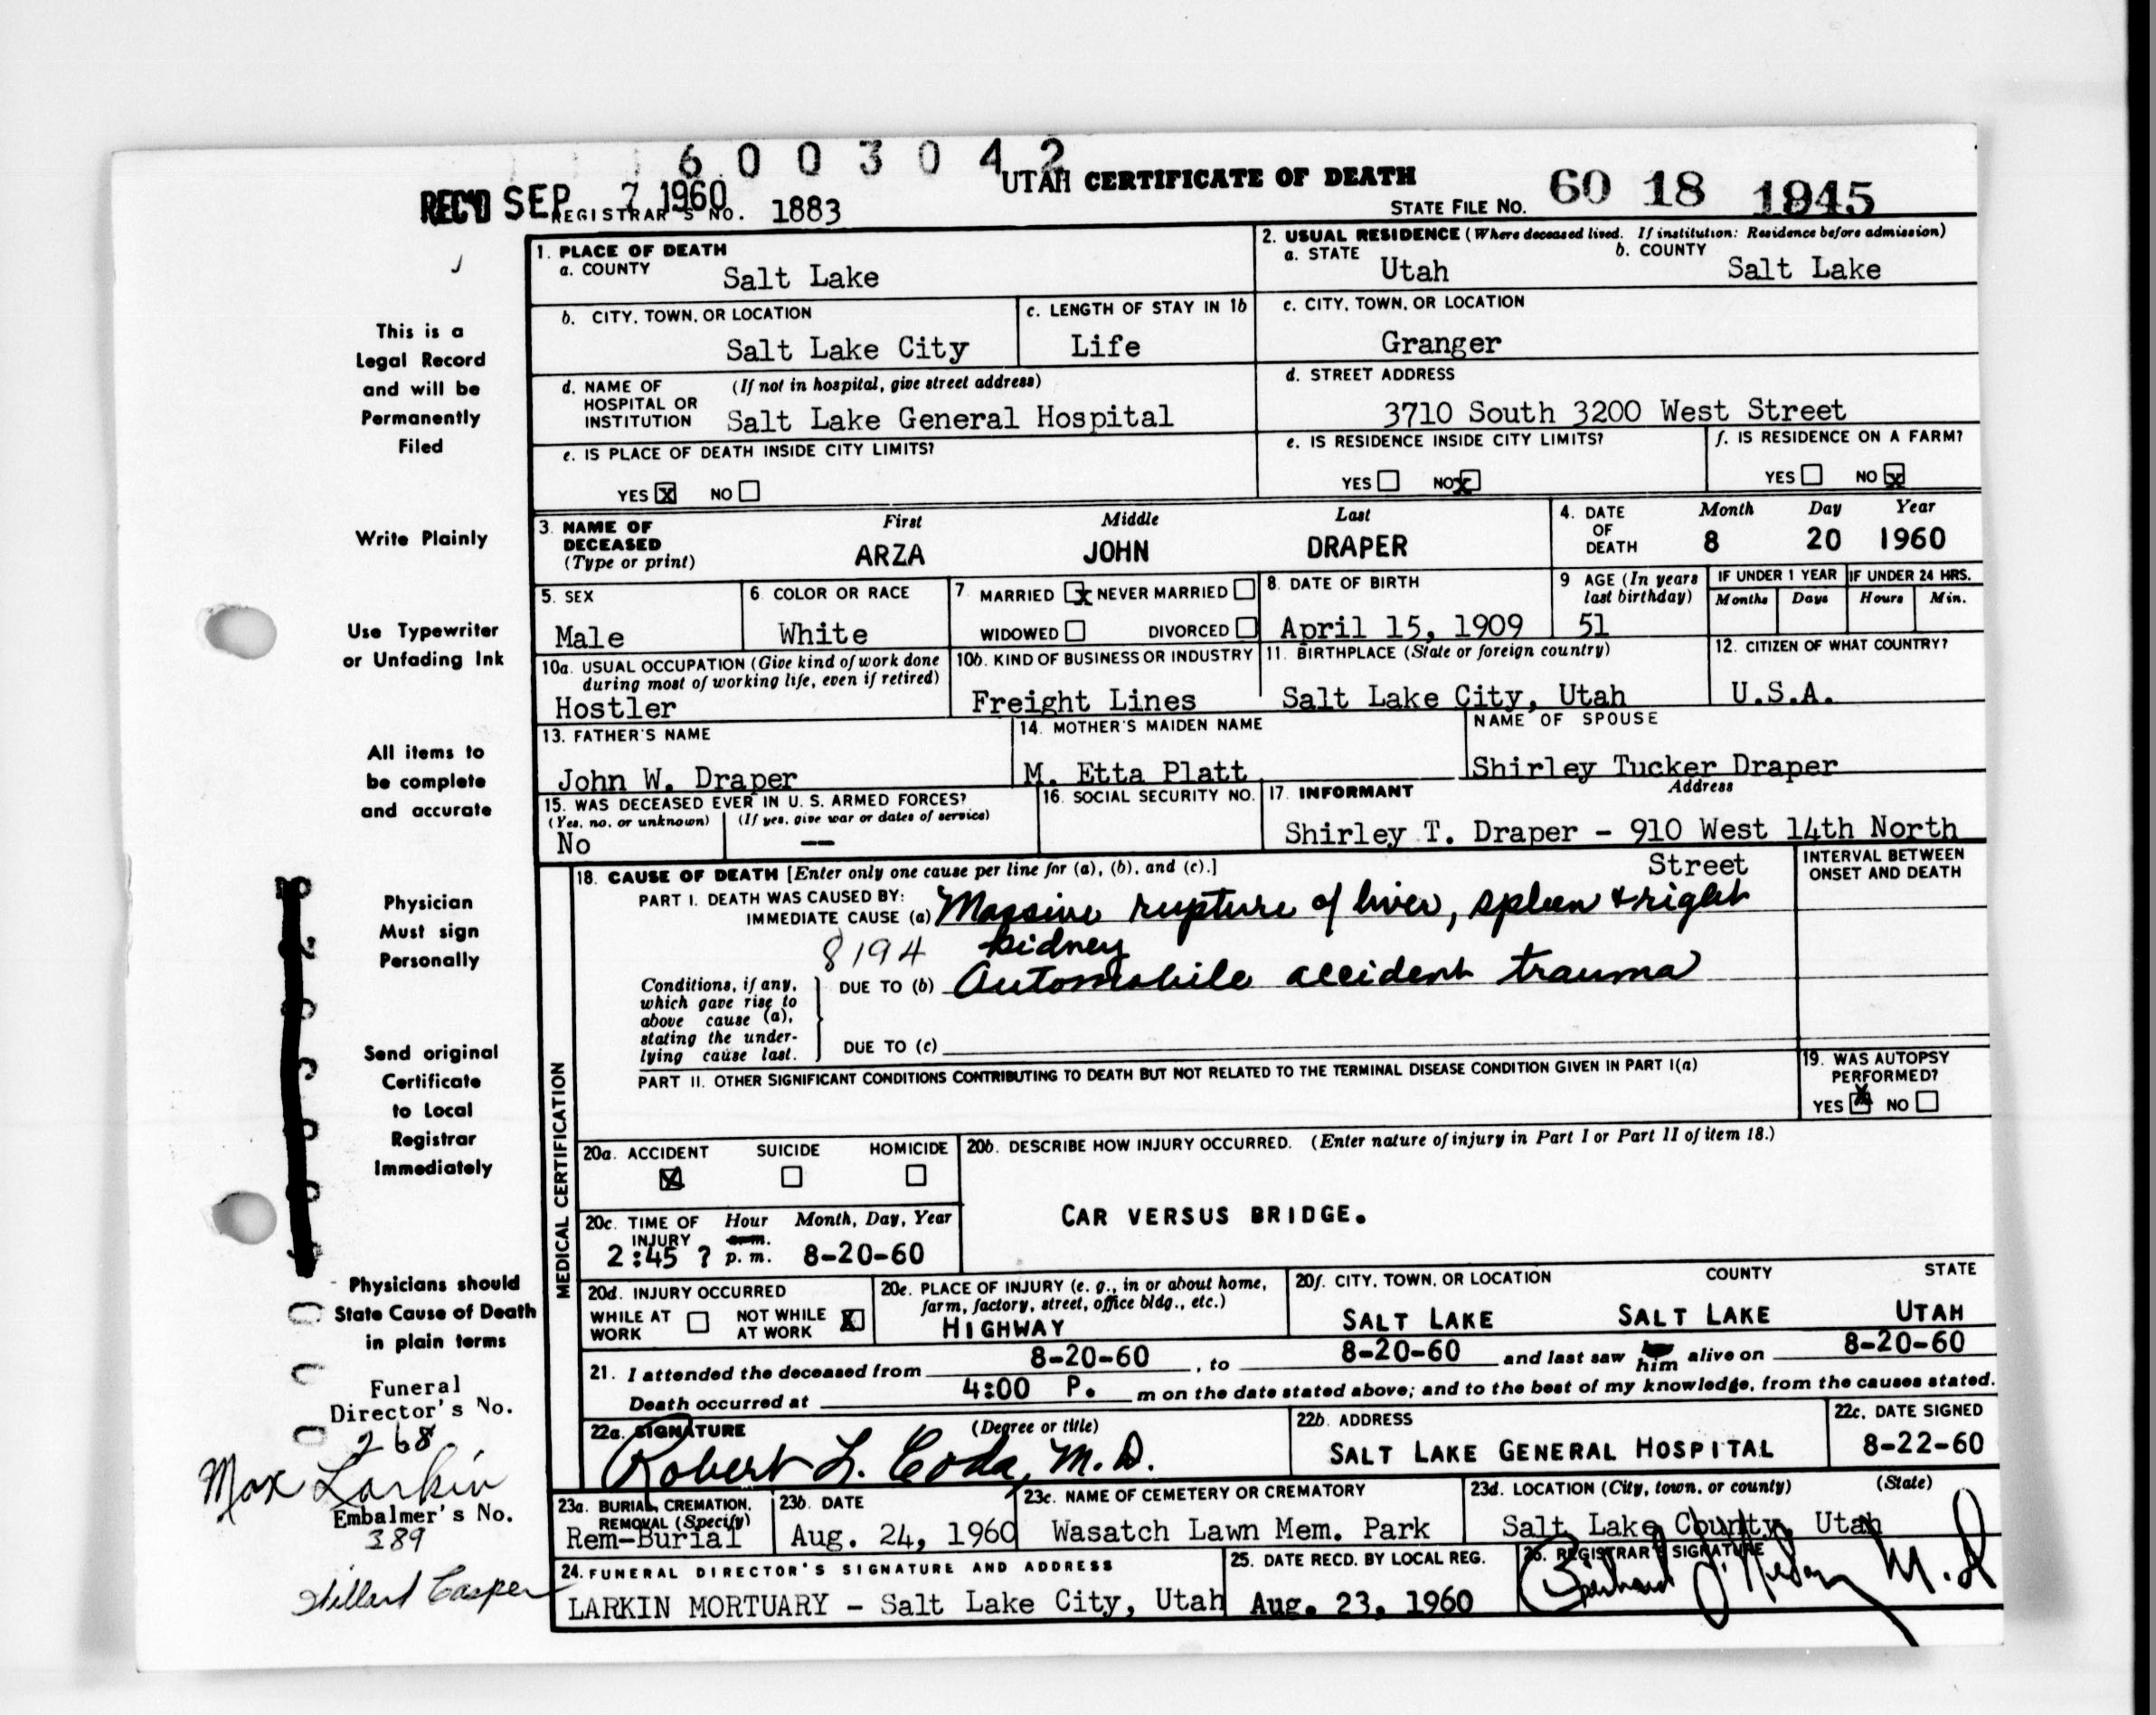 6003042
REC'D SEP 7 1960
REGISTRAR'S NO. 1883
UTAH CERTIFICATE OF DEATH
STATE FILE NO. 60 18 1945
This is a
Legal Record
and will be
Permanently
Filed
Write Plainly
Use Typewriter
or Unfading Ink
All items to
be complete
and accurate
Physician
Must sign
Personally
Send original
Certificate
to Local
Registrar
Immediately
Physicians should
State Cause of Death
in plain terms
Funeral
Director's No.
268
Max Larkin
Embalmer's No.
389
Casper
1. PLACE OF DEATH
a. COUNTY Salt Lake
2. USUAL RESIDENCE (Where deceased lived. If institution: Residence before admission)
a. STATE Utah b. COUNTY Salt Lake
b. CITY, TOWN, OR LOCATION Salt Lake City
c. LENGTH OF STAY IN 1b Life
c. CITY, TOWN, OR LOCATION
Granger
d. NAME OF HOSPITAL OR INSTITUTION (If not in hospital, give street address)
Salt Lake General Hospital
d. STREET ADDRESS
3710 South 3200 West Street
e. IS PLACE OF DEATH INSIDE CITY LIMITS?
YES X NO
e. IS RESIDENCE INSIDE CITY LIMITS?
YES NO X
f. IS RESIDENCE ON A FARM?
YES NO X
3. NAME OF DECEASED (Type or print)
First Middle Last
ARZA JOHN DRAPER
4. DATE OF DEATH Month Day Year
8 20 1960
5. SEX
Male
6. COLOR OR RACE
White
7. MARRIED X NEVER MARRIED
WIDOWED DIVORCED
8. DATE OF BIRTH
April 15, 1909
9 AGE (In years last birthday)
51
IF UNDER 1 YEAR IF UNDER 24 HRS.
Months Days Hours Min.
10a. USUAL OCCUPATION (Give kind of work done during most of working life, even if retired)
Hostler
10b. KIND OF BUSINESS OR INDUSTRY
Freight Lines
11. BIRTHPLACE (State or foreign country)
Salt Lake City, Utah
12. CITIZEN OF WHAT COUNTRY?
U.S.A.
13. FATHER'S NAME
John W. Draper
14. MOTHER'S MAIDEN NAME
M. Etta Platt
NAME OF SPOUSE
Shirley Tucker Draper
15. WAS DECEASED EVER IN U. S. ARMED FORCES?
(Yes, no, or unknown) (If yes, give war or dates of service)
No —
16. SOCIAL SECURITY NO.
17. INFORMANT Address
Shirley T. Draper - 910 West 14th North
Street
18. CAUSE OF DEATH [Enter only one cause per line for (a), (b), and (c).]
INTERVAL BETWEEN ONSET AND DEATH
PART I. DEATH WAS CAUSED BY:
IMMEDIATE CAUSE (a) Massive rupture of liver, spleen & right
8194 kidney
Conditions, if any, which gave rise to above cause (a), stating the underlying cause last.
DUE TO (b) Automobile accident trauma
DUE TO (c)
PART II. OTHER SIGNIFICANT CONDITIONS CONTRIBUTING TO DEATH BUT NOT RELATED TO THE TERMINAL DISEASE CONDITION GIVEN IN PART I(a)
19. WAS AUTOPSY PERFORMED?
YES X NO
MEDICAL CERTIFICATION
20a. ACCIDENT X SUICIDE HOMICIDE
20b. DESCRIBE HOW INJURY OCCURRED. (Enter nature of injury in Part I or Part II of item 18.)
CAR VERSUS BRIDGE.
20c. TIME OF INJURY Hour Month, Day, Year
a.m.
2:45 ? p.m. 8-20-60
20d. INJURY OCCURRED
WHILE AT WORK NOT WHILE AT WORK X
20e. PLACE OF INJURY (e. g., in or about home, farm, factory, street, office bldg., etc.)
HIGHWAY
20f. CITY, TOWN, OR LOCATION COUNTY STATE
SALT LAKE SALT LAKE UTAH
21. I attended the deceased from 8-20-60, to 8-20-60 and last saw him alive on 8-20-60
Death occurred at 4:00 P. m on the date stated above; and to the best of my knowledge, from the causes stated.
22a. SIGNATURE (Degree or title)
Robert L. Coda, M.D.
22b. ADDRESS
SALT LAKE GENERAL HOSPITAL
22c. DATE SIGNED
8-22-60
23a. BURIAL, CREMATION, REMOVAL (Specify)
Rem-Burial
23b. DATE
Aug. 24, 1960
23c. NAME OF CEMETERY OR CREMATORY
Wasatch Lawn Mem. Park
23d. LOCATION (City, town, or county) (State)
Salt Lake County, Utah
24. FUNERAL DIRECTOR'S SIGNATURE AND ADDRESS
LARKIN MORTUARY - Salt Lake City, Utah
25. DATE RECD. BY LOCAL REG.
Aug. 23, 1960
26. REGISTRAR'S SIGNATURE
M.D